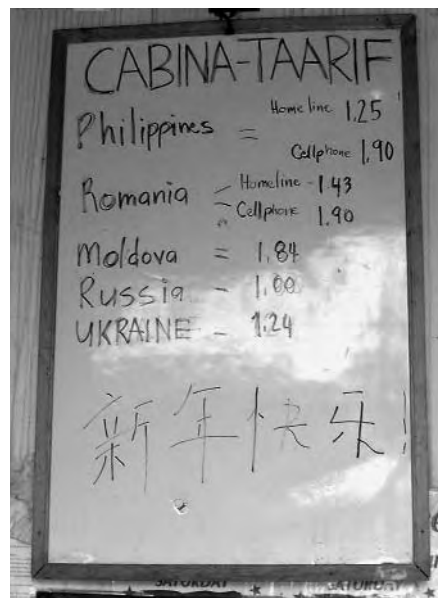 CABINA-TAARIF
Philippines = Home line 1.25
Cellphone 1.90
Romania - Homeline - 1.43
- Cellphone 1.90
Moldova = 1.84
Russia - 1.00
UKRAINE - 1.24
新年快乐!
SATURDAY SATURDAY